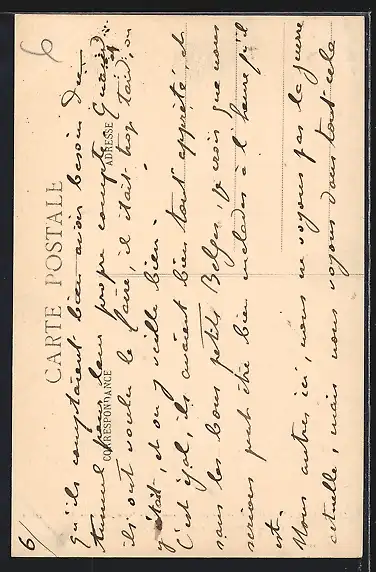 6/
6
CARTE POSTALE
CORRESPONDANCE
ADRESSE
qu'ils comptaient bien avoir besoin du
tunnel pour leur propre compte. Quand
ils ont voulu le faire, il était trop tard, on
y était, et on y veille bien.
C'est égal, ils avaient bien tout apprêté, et
sans les bons petits Belges, je crois que nous
serions peut être bien malades à l'heure qu'il
est.
Nous autres ici, nous ne voyons pas la guerre
actuelle, mais nous voyons dans tout cela